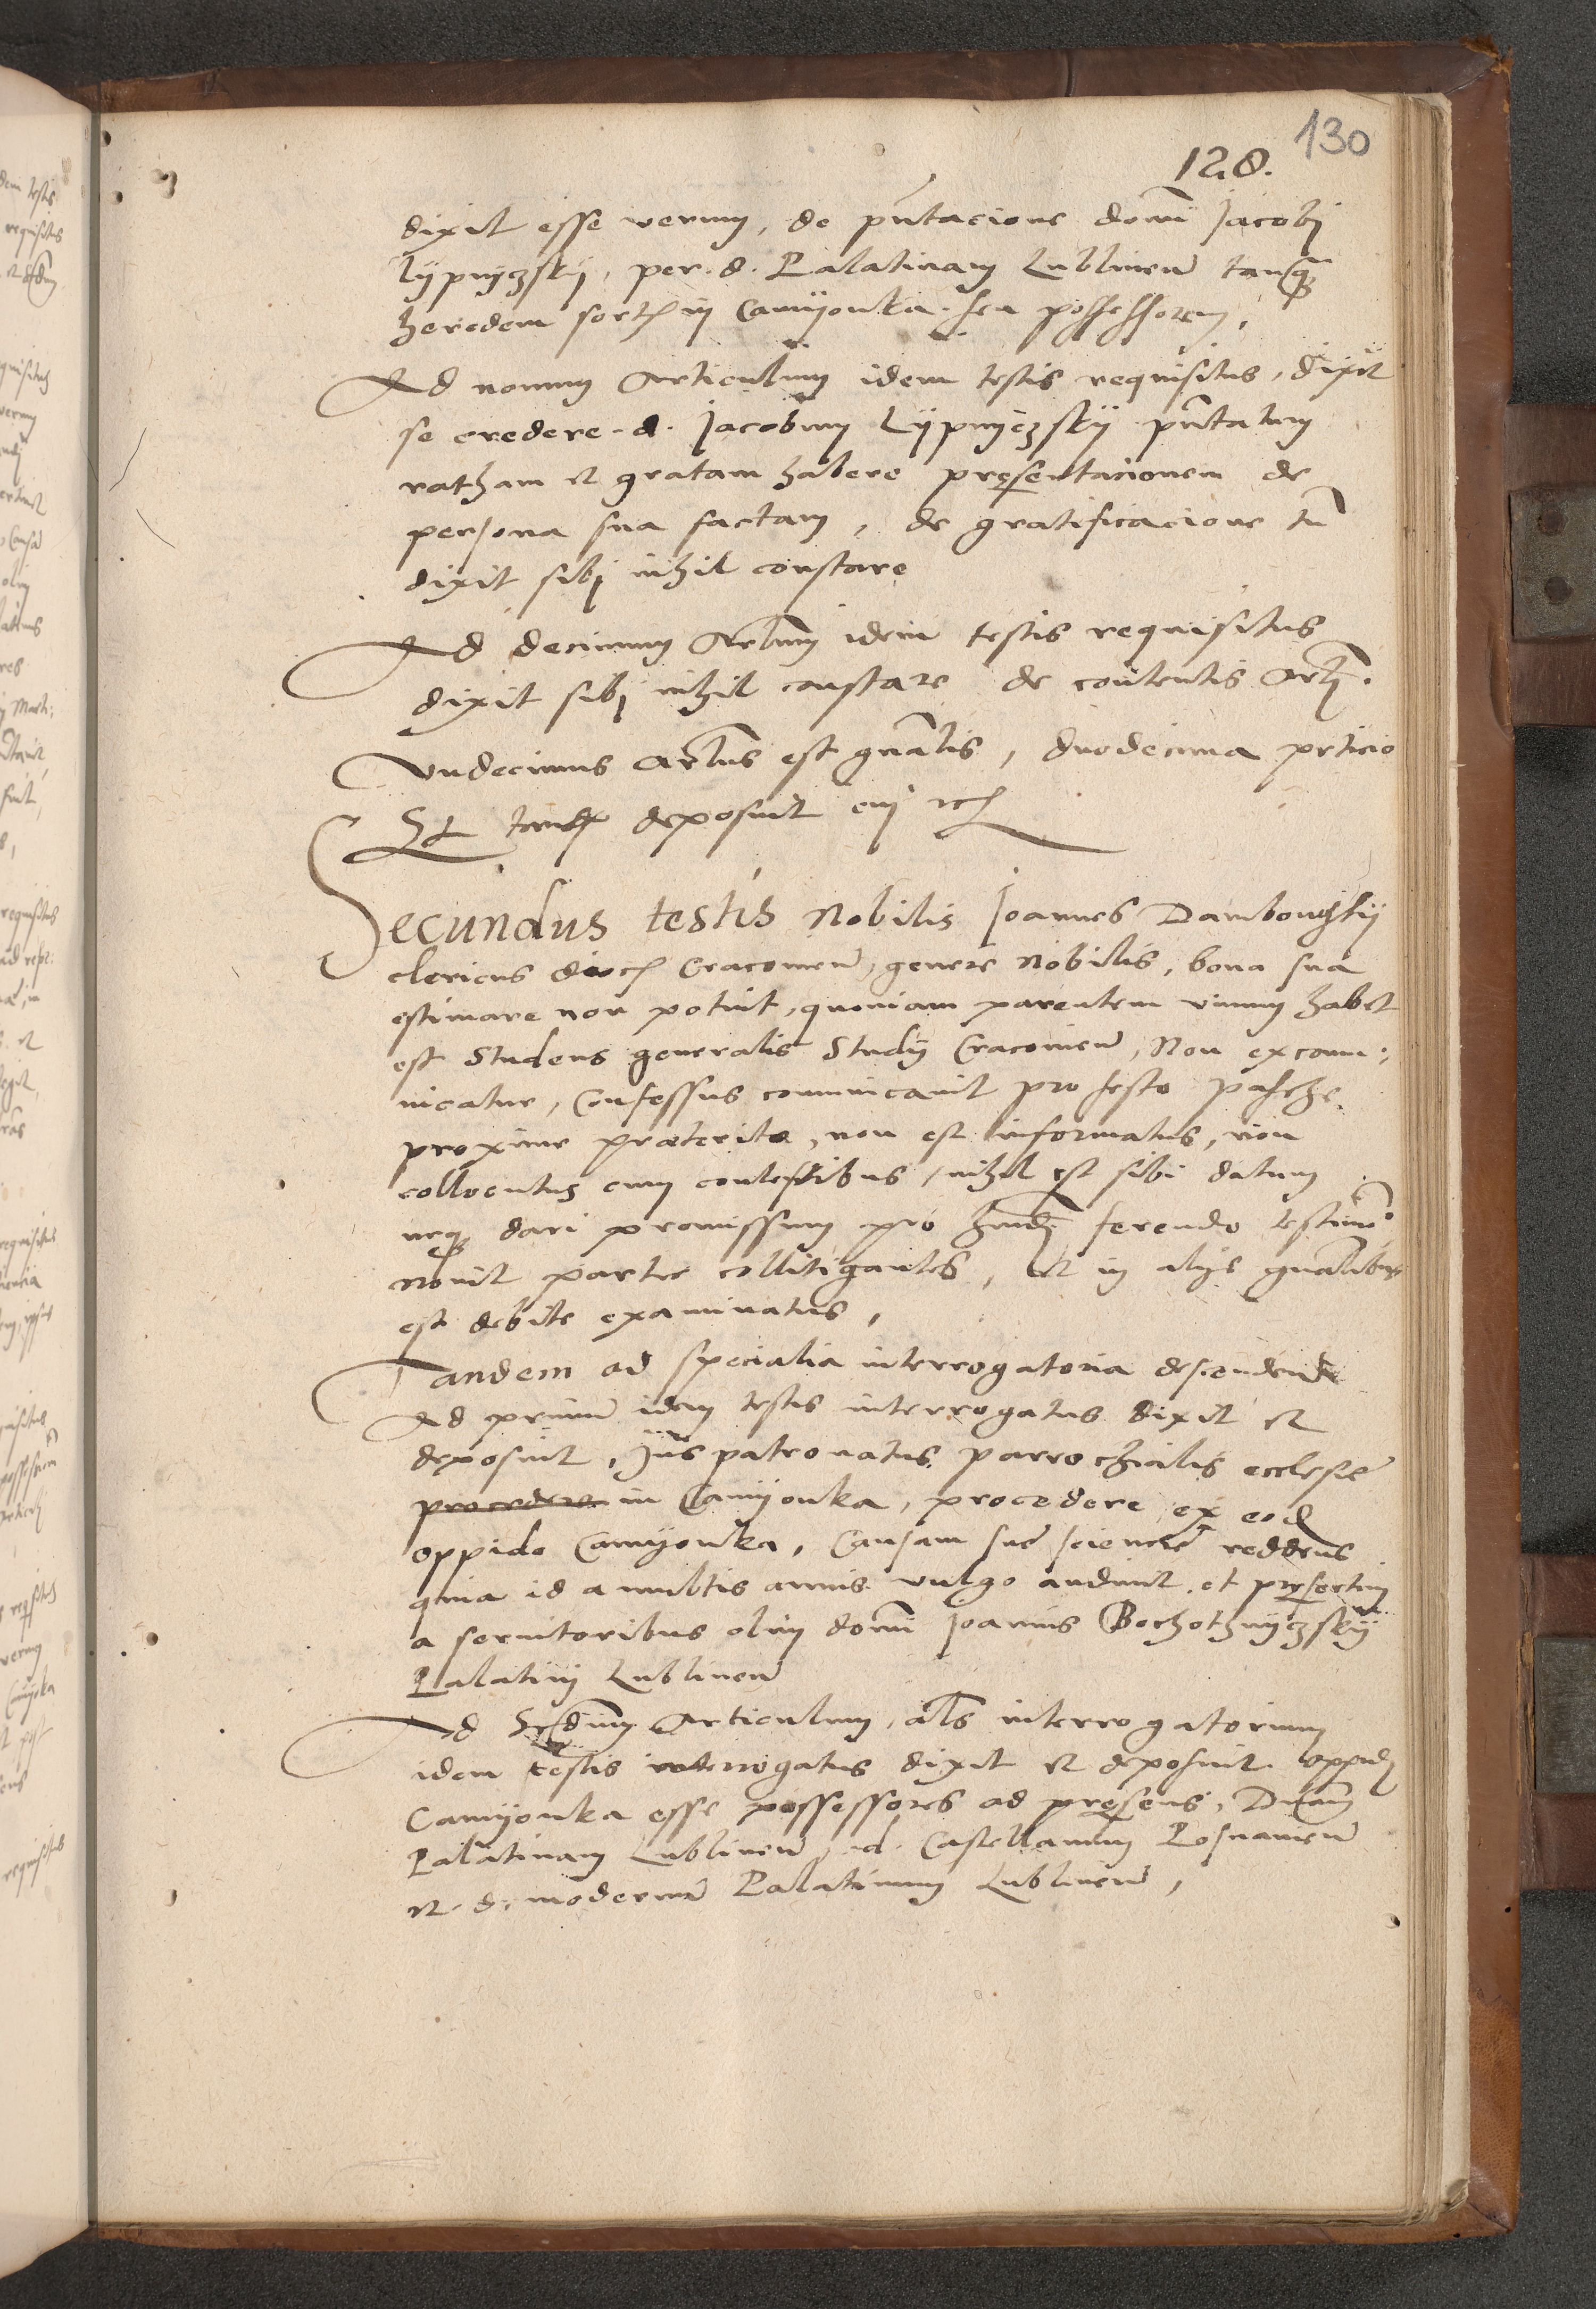 130
128.
dixit esse verum, de pñtacione domi Jacobi
Lypnyczsky, per. d. Palatinam Lublineñ tanq̃
heredem sort in Camyonka. seu possessorem,
Ad nonum Articulum idem testis requisitus, dixit
se credere. d. Jacobum Lypnyczsky pñtatum
ratham et gratam habere presentacionem de
persona sua factam, de gratificacione tñ
dixit sibi nihil constare
Ad decimum Artlum idem testis requisitus
dixit sibi nihil constare de contentis Artli.
Undecimus Artlus est gñalis, duodecima
Et deposuit
Secundus testis Nobilis Joannes Dambowsky
clericus dioc Cracouieñ, genere nobilis, bona sua
estimare non potuit, quoniam parentem viuum habet
est Studens generalis Study Cracouieñ, Non excom:
nicatur, Confessus comunicauit pro festo pasche
proxime præterito, non est informatus, non
collocutus cum contestibus, nihil est sibi datum
neq dari promissum pro hmoi ferendo testimo
Nouit partes collitigantes, Et in alys gñalibus
est debite examinatus,
Tandem ad specialia interrogatoria descendendo
Ad primum idem testis interrogatus dixit et
deposuit, Jus patronatus parrochialis ecclesie
procedere in Camyonka, procedere ex eod
oppido Camyonka, Causam sue sciencie reddens
quia id a multis annis vulgo audiuit, et presertim
a seruitoribus olim domi Joannis Bochothnyczsky
Palatini Lublineñ
Ad Scdum Articulum, als interrogatorium
idem testis interrogatus dixit et deposuit oppidi
Camyonka esse possessores ad presens, Dnam
Palatinam Lublineñ, d. Castellanum Posnanieñ
et. d. modernũ Palatinum Lublineñ,